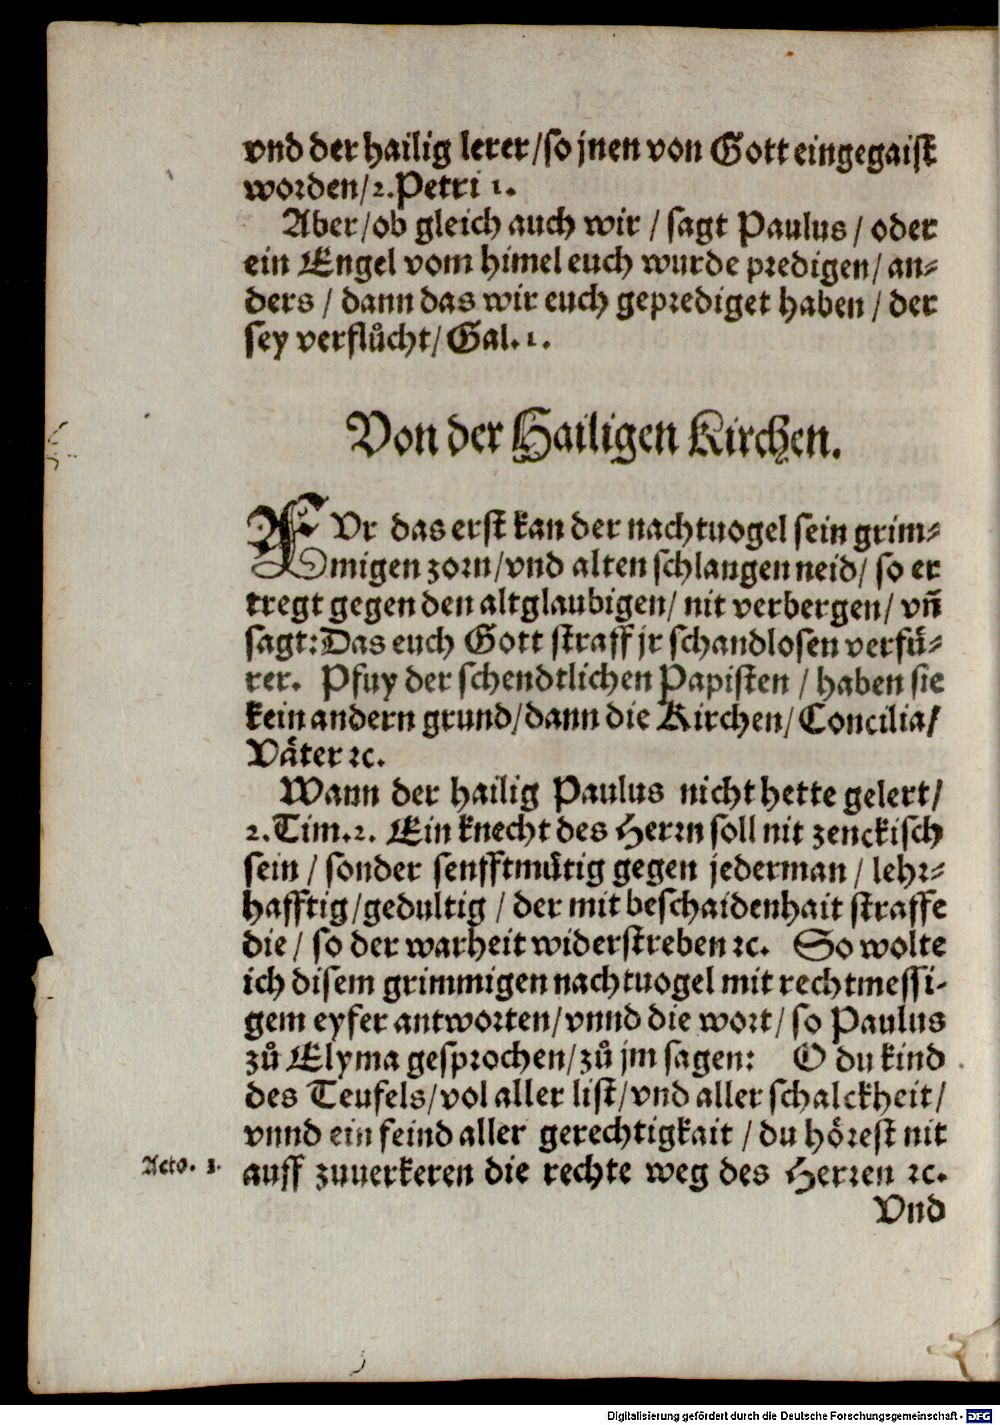 vnd der hailig lerer/so jnen von Gott eingegaist
worden/2.Petri 1.
Aber/ob gleich auch wir / sagt Paulus / oder
ein Engel vom himel euch wurde predigen/ an⸗
ders / dann das wir euch geprediget haben / der
sey verflůcht/ Gal. 1.
Von der Hailigen Kirchen.
FVr das erst kan der nachtuogel sein grim⸗
migen zorn/vnd alten schlangen neid/ so er
tregt gegen den altglaubigen/ nit verbergen/ vn̄
sagt:Das euch Gott straff jr schandlosen verfuͤ⸗
rer. Pfuy der schendtlichen Papisten / haben sie
kein andern grund/dann die Kirchen/ Concilia/
Vaͤter ꝛc.
Wann der hailig Paulus nicht hette gelert/
2.Tim.2. Ein knecht des Herrn soll nit zenckisch
sein / sonder senfftmuͤtig gegen jederman / lehr⸗
hafftig/gedultig / der mit beschaidenhait straffe
die/ so der warheit widerstreben ꝛc. So wolte
ich disem grimmigen nachtuogel mit rechtmessi⸗
gem eyfer antworten/vnnd die wort/ so Paulus
zů Elyma gesprochen/zů jm sagen: O du kind
des Teufels/vol aller list/vnd aller schalckheit/
vnnd ein feind aller gerechtigkait / du hoͤrest nit
Acto. 1. auff zuuerkeren die rechte weg des Herren ꝛc.
Vnd
Digitalisierung gefördert durch die Deutsche Forschungsgemeinschaft - DFG